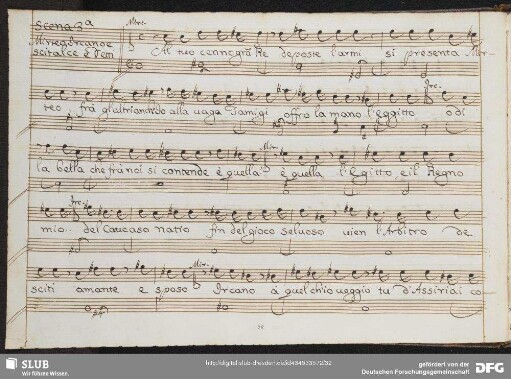 Scena 3ª
Mirt.
Mirteo Ircano e
Scitalce e dem
Al tuo cenno gra Re deposte l'armi si presenta Mir-
Irc.
teo frà gl'altri anch'io alla vaga Tamigi offro la mano l'eggitto odi
Mir.
la bella che frà noi si contende è quella è quella l'Egitto e il Regno
Irc.
mio del Caucaso natio fin del gioco seluoso vien l'Arbitro de
Mir.
sciti amante e sposo Ircano à quel ch'io veggio tu d'Assiria i co-
SLUB
Wir führen Wissen.
http://digital.slub-dresden.de/id434933572/32
gefördert von der
Deutschen Forschungsgemeinschaft
DFG